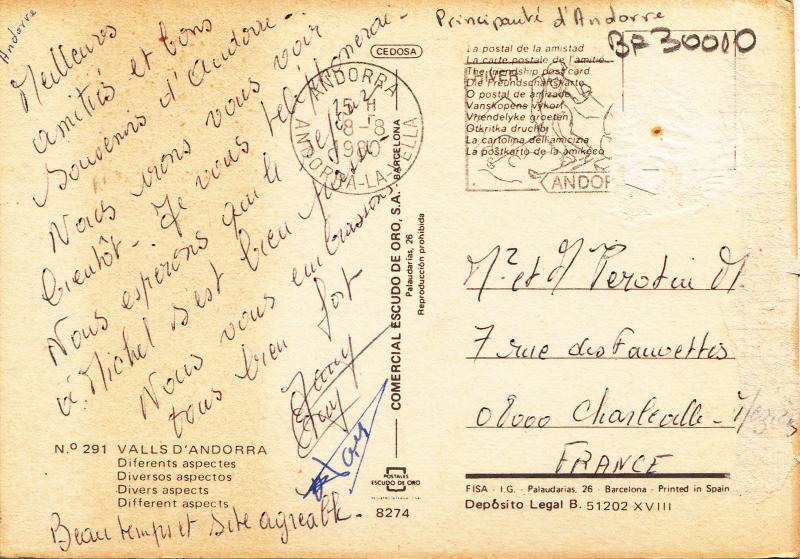 Andorre
Meilleures
amitiés et bons
Souvenirs d'andorre.
Nous irons vous voir
bientôt. Je vous téléphonerai.
Nous esperons que le séjour
à Michel s'est bien passé.
Nous vous embrassons
tous bien fort
Fany
N.º 291 VALLS D'ANDORRA
Diferents aspectes
Diversos aspectos
Divers aspects
Different aspects
Beau temps et site agreable.
CEDOSA
ANDORRA
15 H
8-8
ANDORRA-LA-VELLA
COMERCIAL ESCUDO DE ORO, S.A. - BARCELONA
Palaudarias, 26
Reproducción prohibida
POSTALES
ESCUDO DE ORO
8274
Principauté d'Andorre
BF30010
La postal de la amistad
La carte postale de l'amitié
The friendship post card
Die Freundschaftskarte
O postal de amizade
Vanskopens vykort
Vriendelyke groeten
Otkritka druchbi
La cartolina dell'amicizia
La postkarto de la amikeco
ANDOR
et M Perotin M.
7 rue des Fauvettes
08000 Charleville-
FRANCE
FISA - I.G. - Palaudarias, 26 - Barcelona - Printed in Spain
Depósito Legal B. 51202 XVIII